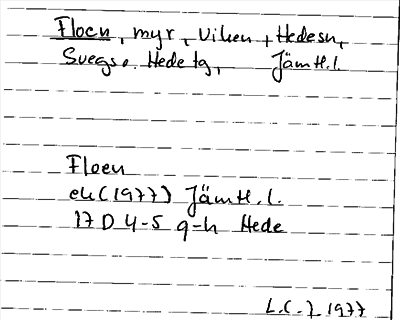 Floen, myr, Viken, Hedesn,
Svegs o. Hede tg, Jämtl. l.
Floen
ek (1977) Jämtl. l.
17 D 4-5 g-h Hede
L.C.J. 1977